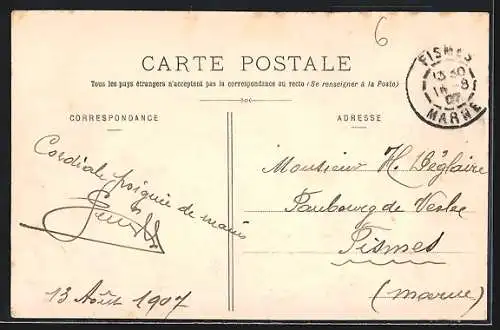 6
CARTE POSTALE
Tous les pays étrangers n'acceptent pas la correspondance au recto (Se renseigner à la Poste)
CORRESPONDANCE
ADRESSE
FISMES
13 30
14 - 8
07
MARNE
Cordiale poignée de mains
13 Août 1907
Monsieur H. Déglaire
Faubourg de Vesle
Fismes
(Marne)